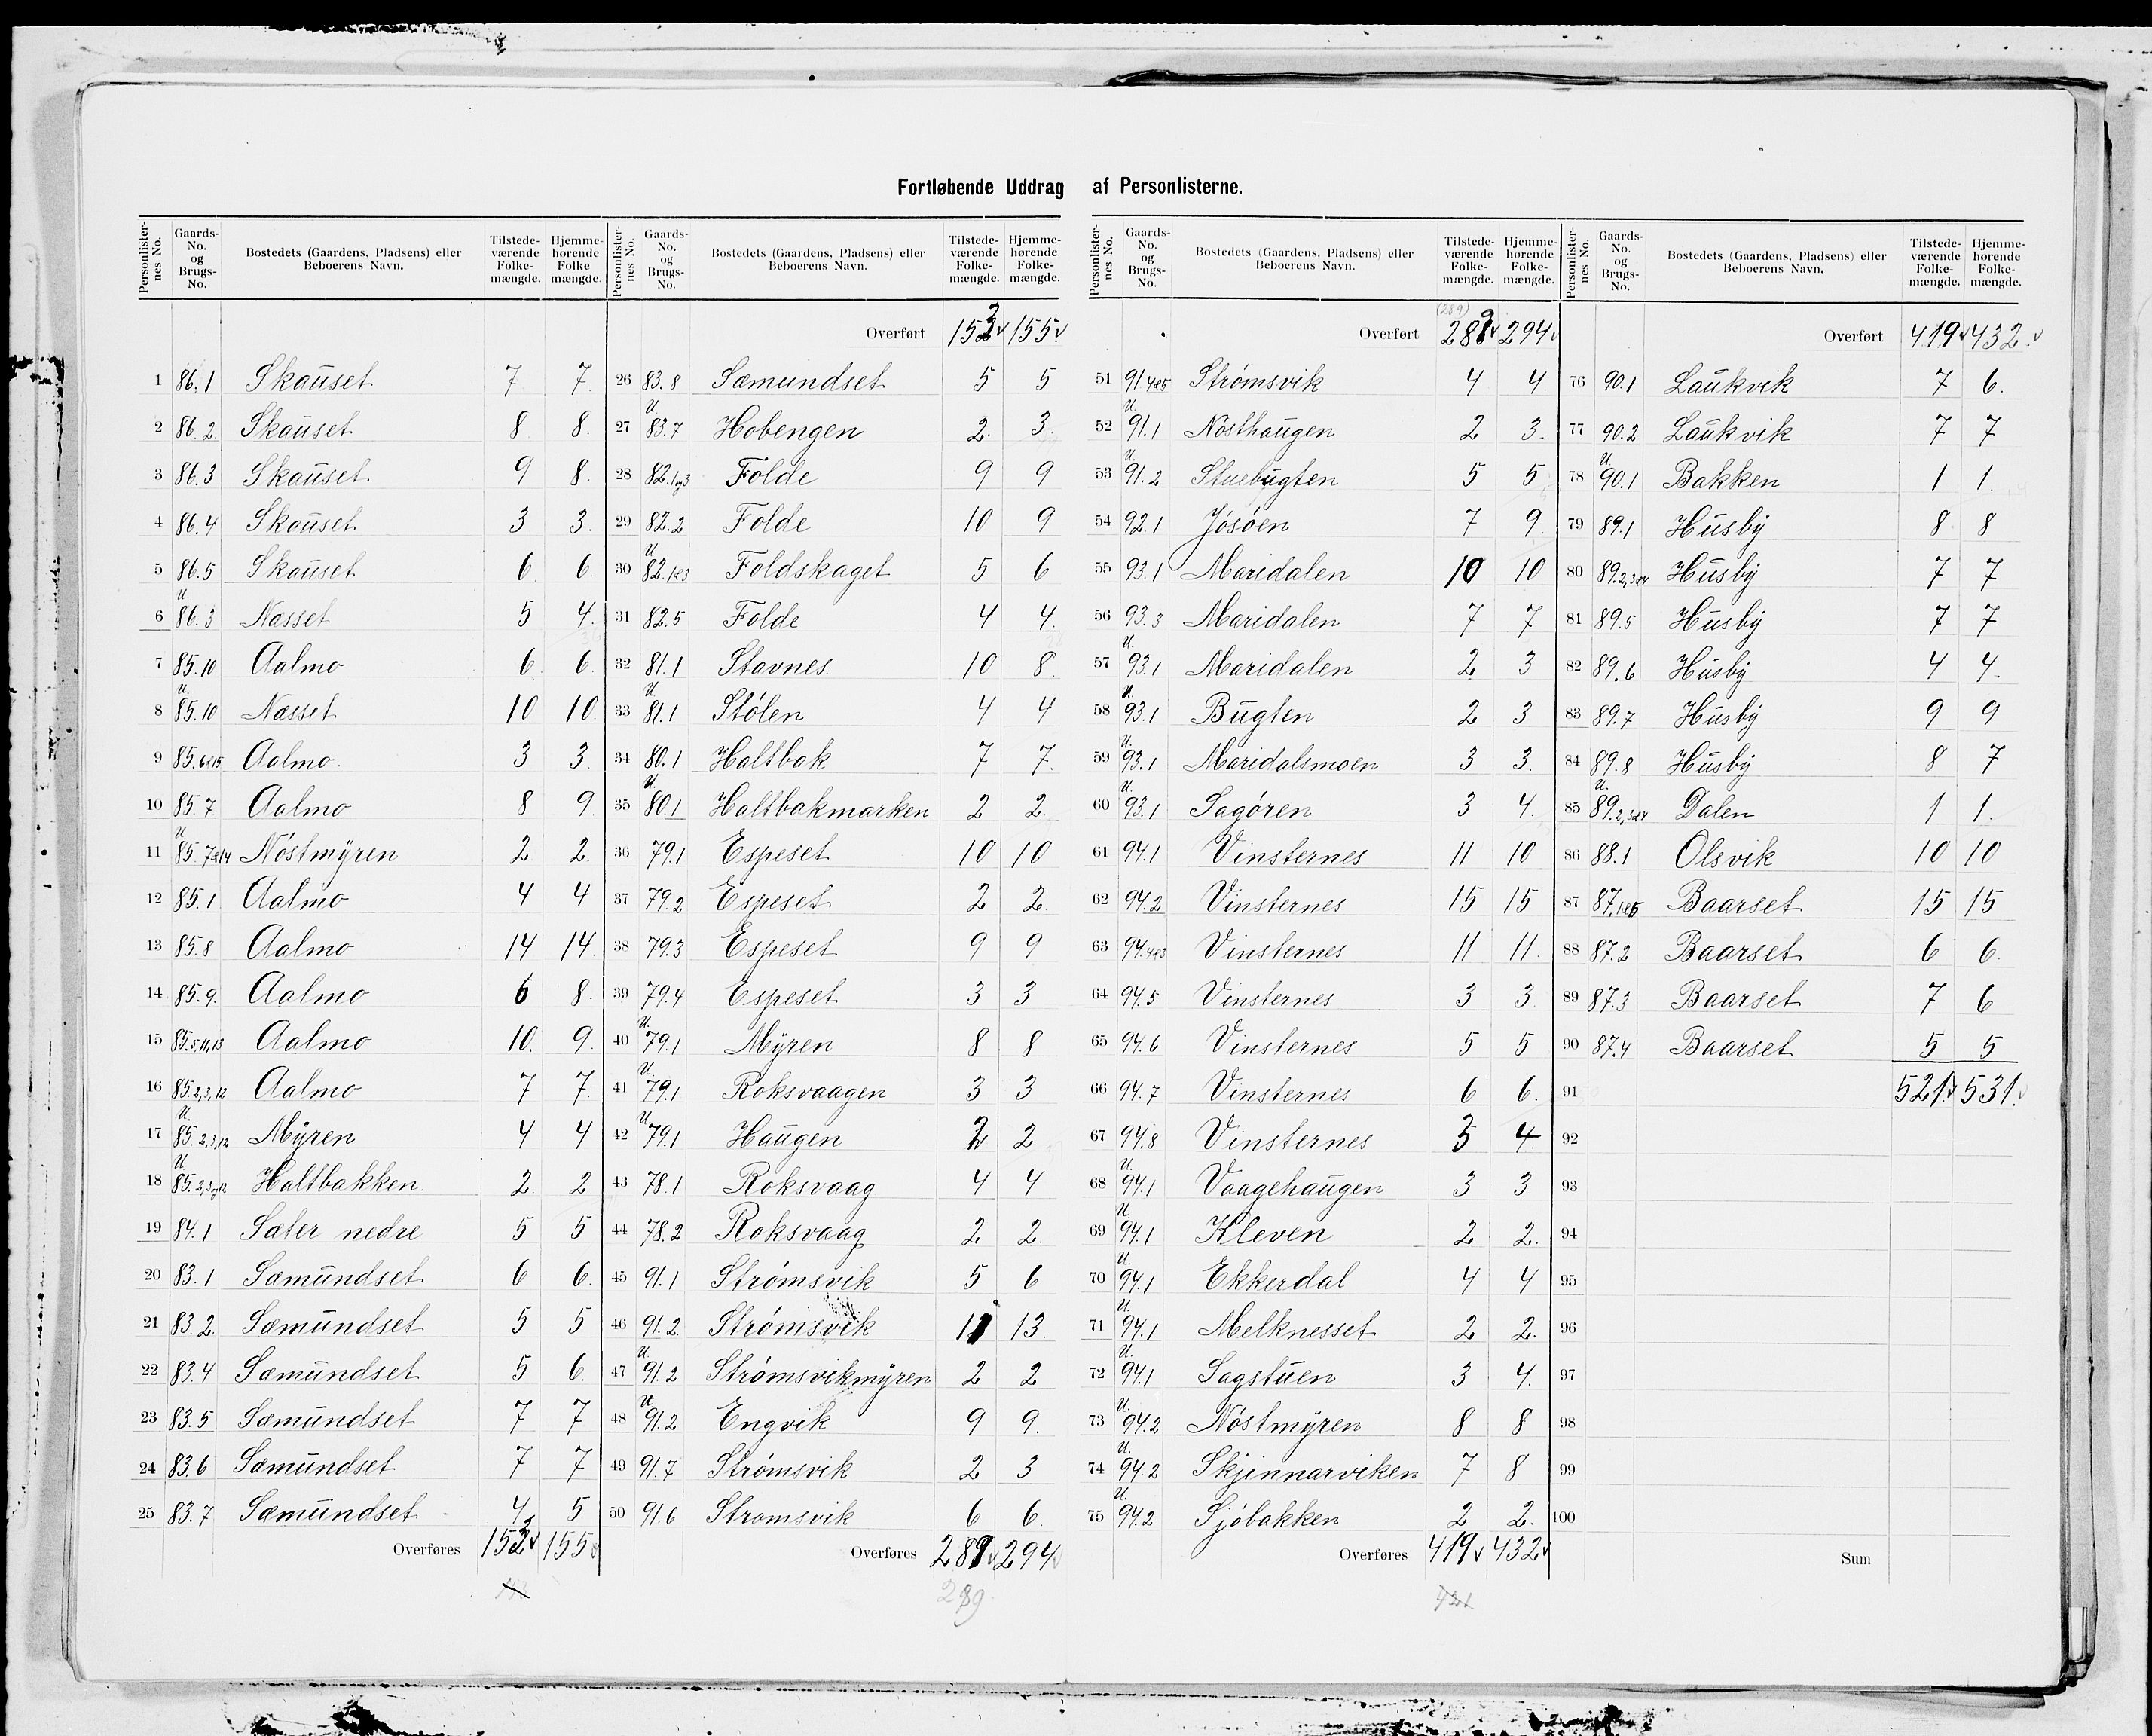 Fortløbende Uddrag af Personlisterne.
Personlister-nes No. Gaards-No. og Brugs-No. Bostedets (Gaardens, Pladsens) eller Beboerens Navn. Tilstede-værende Folke-mængde. Hjemme-hørende Folke-mængde.
1 86.1 Skauset 7 7
2 86.2 Skauset 8 8.
3 86.3 Skauset 9 8.
4 86.4 Skauset 3 3.
5 86.5 Skauset 6 6.
6 U. 86.3 Næsset 5 4.
7 85.10 Aalmo 6 6.
8 U. 85.10 Næsset 10 10
9 85.6&15 Aalmo 3 3
10 85.7 Aalmo 8 9
11 U. 85.7&14 Nöstmÿren 2 2.
12 85.1 Aalmo 4 4
13 85.8 Aalmo 14 14
14 85.9 Aalmo 6 8.
15 85.5,11,13 Aalmo 10. 9.
16 85.2,3,12 Aalmo 7 7.
17 U. 85.2,3,12 Mÿren 4 4
18 U. 85.2,3og12 Haltbakken 2. 2
19 84.1 Sæter nedre 5 5
20 83.1 Sæmundset 6 6.
21 83.2. Sæmundset 5 5
22 83.4 Sæmundset 5 6.
23 83.5 Sæmundset 7 7
24 83.6 Sæmundset 7 7
25 83.7 Sæmundset 4 5
Overføres 153 155
Personlister-nes No. Gaards-No. og Brugs-No. Bostedets (Gaardens, Pladsens) eller Beboerens Navn. Tilstede-værende Folke-mængde. Hjemme-hørende Folke-mængde.
Overført 153 155
26 83.8 Sæmundset 5 5
27 U. 83.7 Hobengen 2. 3
28 82.1og3 Folde 9 9
29 82.2 Folde 10 9
30 U 82.1&3 Foldskaget 5 6
31 82.5 Folde 4 4.
32 81.1 Stavnes 10 8
33 U. 81.1 Stölen 4 4
34 80.1 Haltbak 7 7.
35 U. 80.1 Haltbakmarken 2 2
36 79.1 Espeset 10 10
37 79.2 Espeset 2 2
38 79.3 Espeset 9 9
39 79.4 Espeset 3 3
40 U. 79.1 Mÿren 8 8
41 U. 79.1 Roksvaagen 3 3
42 U. 79.1 Haugen 2 2
43 78.1 Roksvaag 4 4
44 78.2 Roksvaag 2 2.
45 91.1 Strömsvik 5 6
46 91.2. Strömsvik 11 13.
47 U. 91.2 Strömsvikmÿren 2 2
48 U 91.2 Engvik 9 9.
49 91.7 Strömsvik 2 3
50 91.6 Stromsvik 6 6.
Overføres 289 294
289
Personlister-nes No. Gaards-No. og Brugs-No. Bostedets (Gaardens, Pladsens) eller Beboerens Navn. Tilstede-værende Folke-mængde. Hjemme-hørende Folke-mængde.
(289)
Overført 289 294
51 91.4&5 Strömsvik 4 4
52 U. 91.1 Nösthaugen 2 3.
53 U. 91.2 Stuebugten 5 5
54 92.1 Jösöen 7 9
55 93.1 Maridalen 10 10
56 93.3 Maridalen 7 7
57 U. 93.1 Maridalen 2 3
58 U. 93.1 Bugten 2 3
59 U. 93.1 Maridalsmoen 3 3.
60 U. 93.1 Sagören 3 4.
61 94.1 Vinsternes 11 10
62 94.2 Vinsternes 15 15
63 94.4&3 Vinsternes 11 11.
64 94.5 Vinsternes 3 3
65 94.6 Vinsternes 5 5
66 94.7 Vinsternes 6 6.
67 94.8 Vinsternes 3 4
68 U. 94.1 Vaagehaugen 3 3
69 U. 94.1 Kleven 2 2.
70 U. 94.1 Ekkerdal 4 4
71 U. 94.1 Melknesset 2 2.
72 U. 94.1 Sagstuen 3 4.
73 U. 94.2 Nöstmÿren 8 8
74 U. 94.2 Skjinnarviken 7 8
75 U. 94.2 Sjöbakken 2 2.
Overføres 419 432
421
Personlister-nes No. Gaards-No. og Brugs-No. Bostedets (Gaardens, Pladsens) eller Beboerens Navn. Tilstede-værende Folke-mængde. Hjemme-hørende Folke-mængde.
Overført 419 432
76 90.1 Laukvik 7 6.
77 90.2 Laukvik 7 7
78 U 90.1 Bakken 1 1.
79 89.1 Husby 8 8
80 89.2,3&4 Husby 7 7
81 89.5 Husby 7 7
82 89.6 Husby 4 4.
83 89.7 Husby 9 9
84 89.8 Husby 8 7
85 U. 89.2,3&4 Dalen 1 1.
86 88.1 Olsvik 10 10
87 87.1&5 Baarset 15 15
88 87.2 Baarset 6 6.
89 87.3 Baarset 7 6
90 87.4 Baarset 5 5
91 521 531
92
93
94
95
96
97
98
99
100
Sum